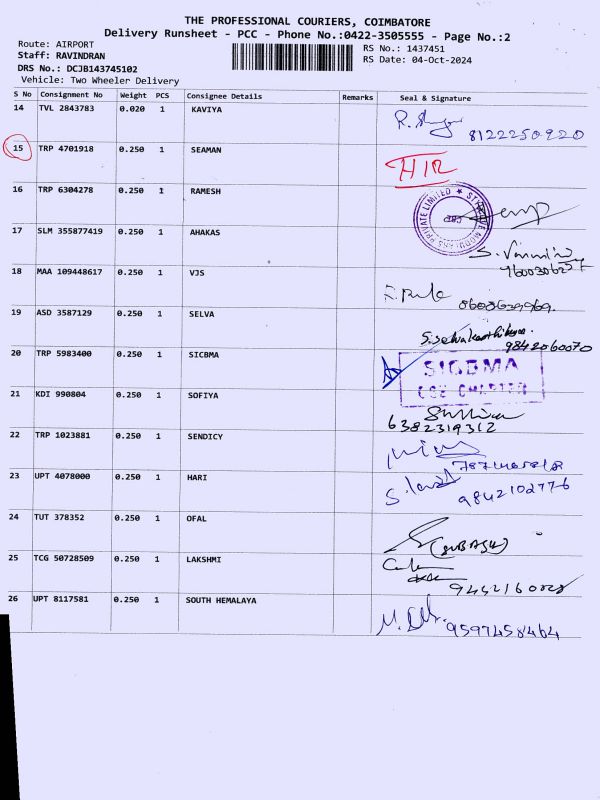 THE PROFESSIONAL COURIERS, COIMBATORE
Delivery Runsheet - PCC - Phone No.:0422-3505555 - Page No.:2
Route: AIRPORT
RS No.: 1437451
Staff: RAVINDRAN
RS Date: 04-Oct-2024
DRS No.: DCJB143745102
Vehicle: Two Wheeler Delivery
S No Consignment No Weight PCS Consignee Details Remarks Seal & Signature
14 TVL 2843783 0.020 1 KAVIYA
8122250920
15 TRP 4701918 0.250 1 SEAMAN
16 TRP 6304278 0.250 1 RAMESH
17 SLM 355877419 0.250 1 AHAKAS
18 MAA 109448617 0.250 1 VJS
19 ASD 3587129 0.250 1 SELVA
9842060070
20 TRP 5983400 0.250 1 SICBMA
SIGBMA
21 KDI 990804 0.250 1 SOFIYA
6382319312
22 TRP 1023881 0.250 1 SENDICY
23 UPT 4078000 0.250 1 HARI
9842102776
24 TUT 378352 0.250 1 OFAL
25 TCG 50728509 0.250 1 LAKSHMI
26 UPT 8117581 0.250 1 SOUTH HEMALAYA
9597458464